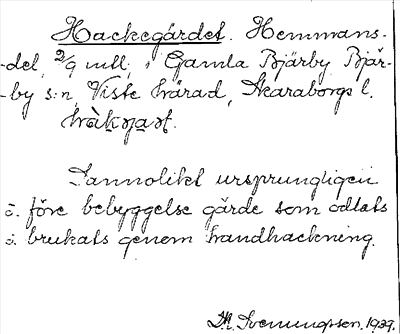 Hackegärdet. Hemmans-
-del, 2/9 mtl, i Gamla Bjärby Bjär-
-by s:n, Viste härad, Skaraborgs l.
Sannolikt ursprungligen
o. före bebyggelse gärde som odlats
o. brukats genom handhackning.
1929.